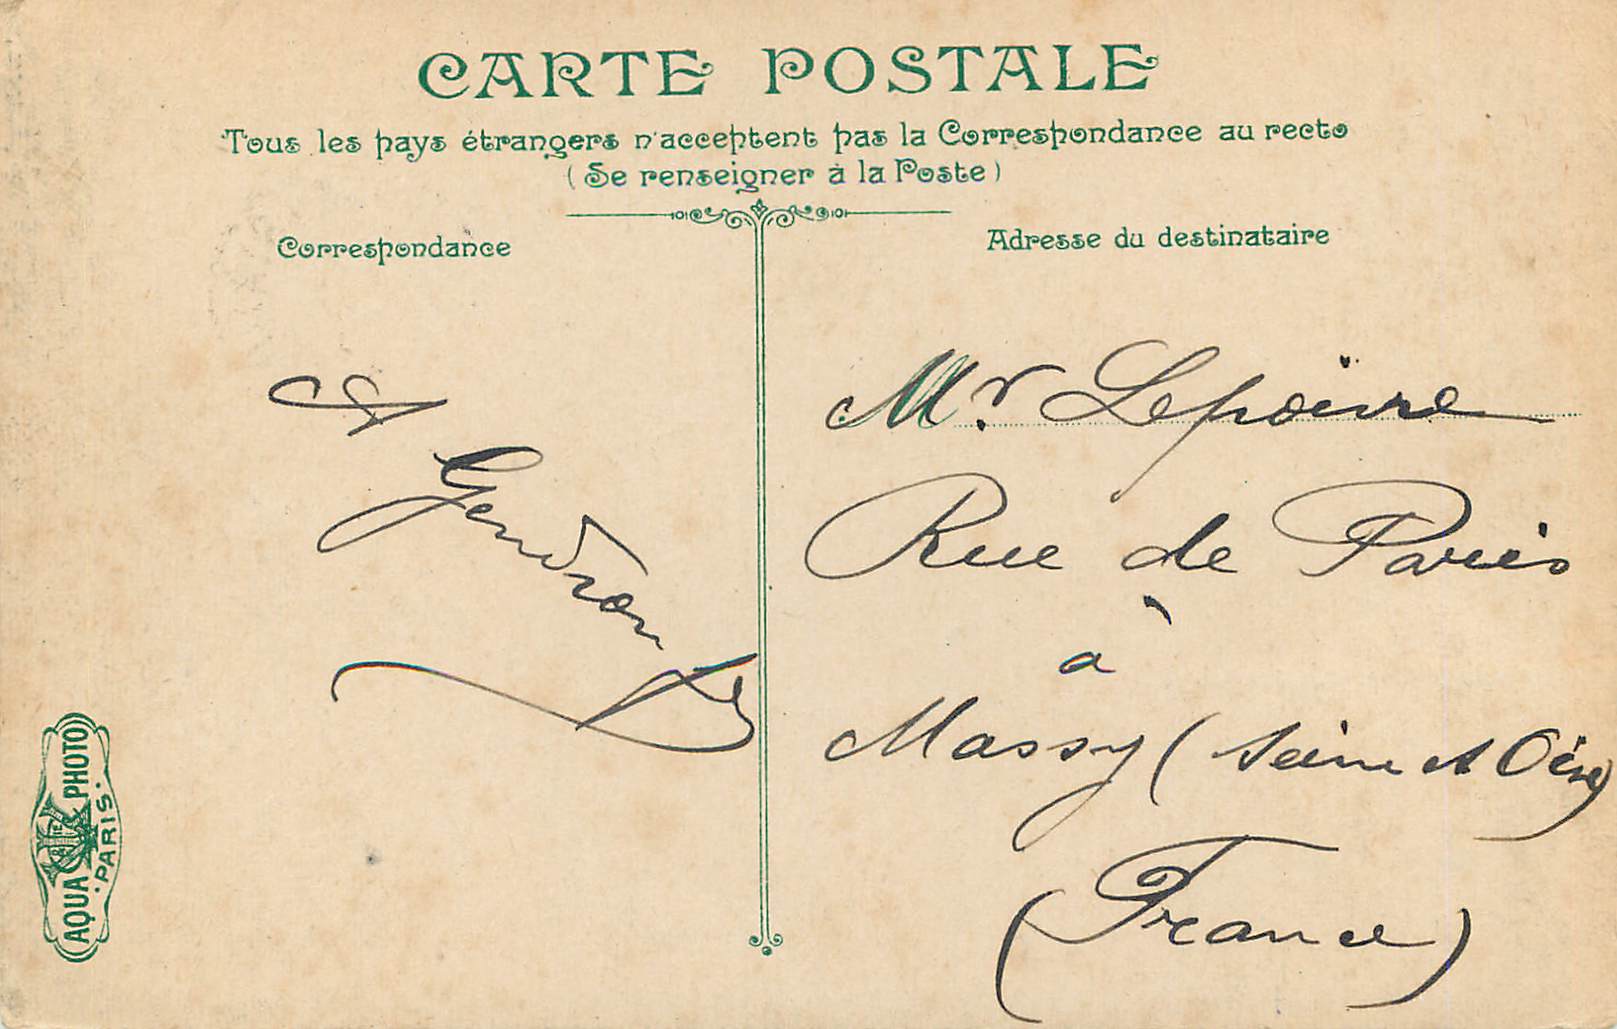 CARTE POSTALE
Tous les pays étrangers n'acceptent pas la Correspondance au recto
(Se renseigner à la Poste)
Correspondance
Adresse du destinataire
Gendron
Mr Lepoivre
Rue de Paris
à
Massy (Seine et Oise)
(France)
AQUA PHOTO
PARIS